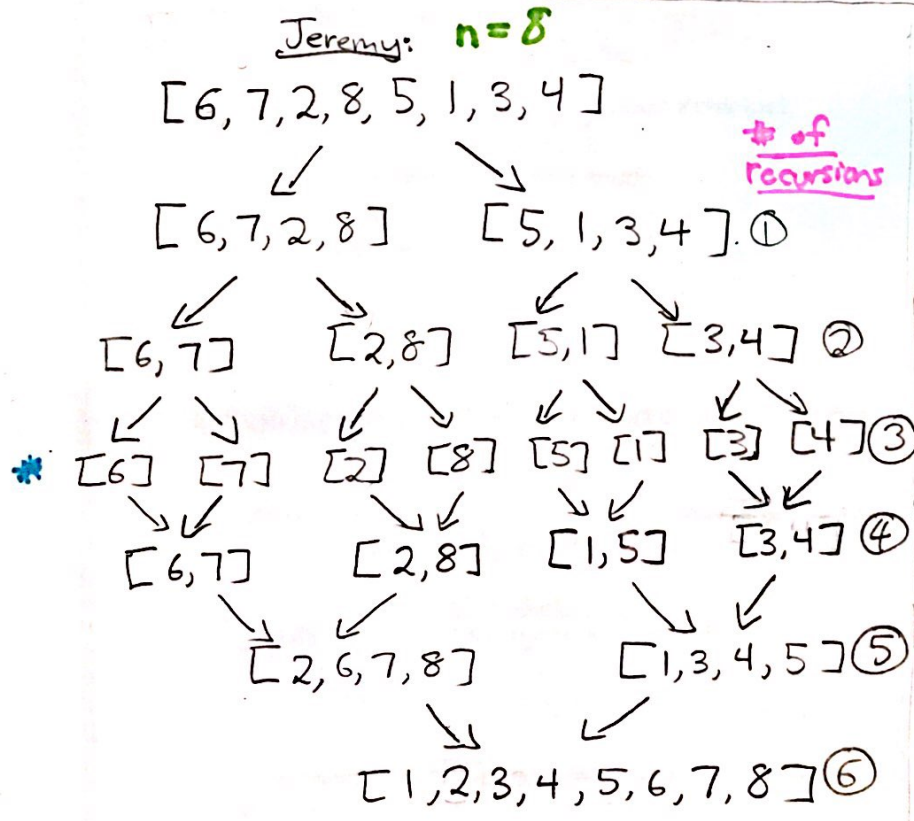 Jeremy: n=8
[6, 7, 2, 8, 5, 1, 3, 4]
# of
recursions
[6, 7, 2, 8] [5, 1, 3, 4]. ①
[6, 7] [2, 8] [5, 1] [3, 4] ②
* [6] [7] [2] [8] [5] [1] [3] [4] ③
[6, 7] [2, 8] [1, 5] [3, 4] ④
[2, 6, 7, 8] [1, 3, 4, 5] ⑤
[1, 2, 3, 4, 5, 6, 7, 8] ⑥